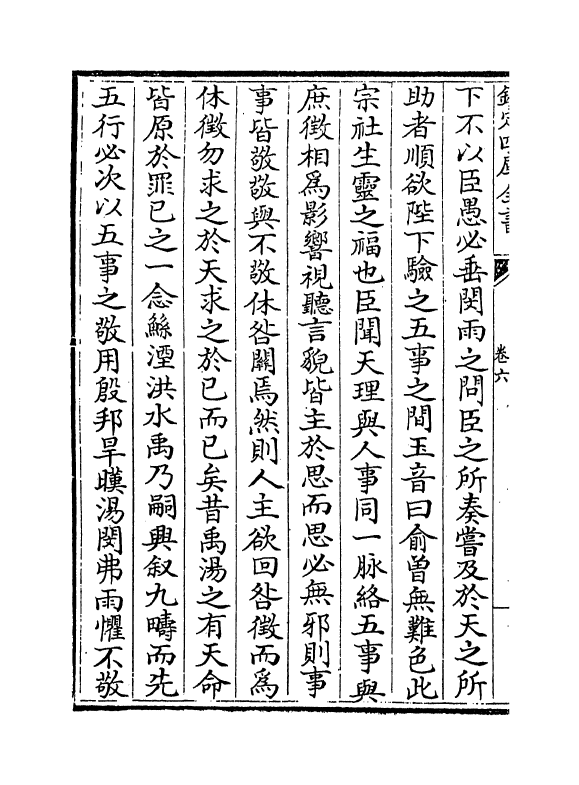 欽定四庫全書
卷六
下不以臣愚必垂閔雨之問臣之所奏嘗及於天之所
助者順欲陛下驗之五事之間玉音曰俞曾無難色此
宗社生靈之福也臣聞天理與人事同一脉絡五事與
庶徵相為影響視聽言貌皆主於思而思必無邪則事
事皆敬敬與不敬休咎關焉然則人主欲回咎徵而為
休徵勿求之於天求之於已而已矣昔禹湯之有天命
皆原於罪已之一念鯀湮洪水禹乃嗣興叙九疇而先
五行必次以五事之敬用殷邦旱暵湯閔弗雨懼不敬